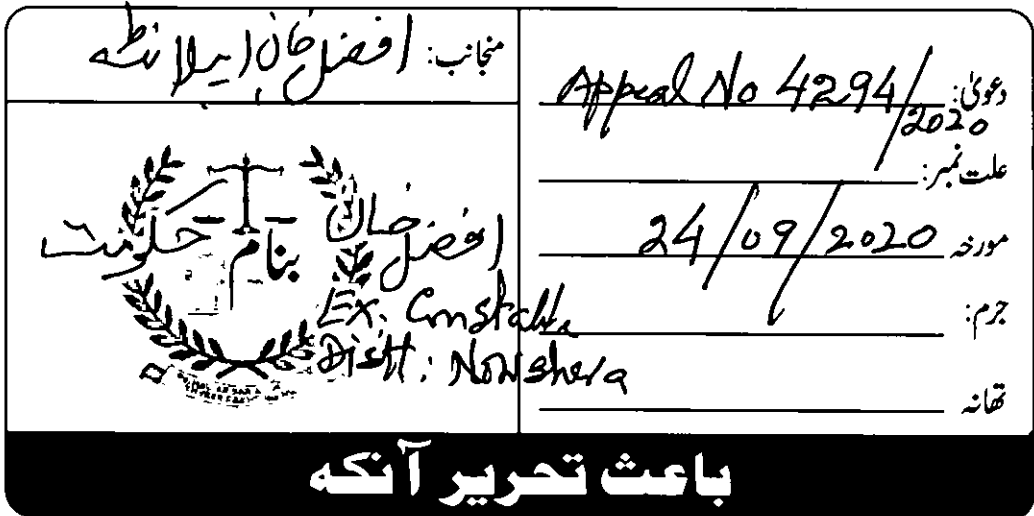 منجانب: افضل خان اپیلانٹ
دعویٰ: Appeal No 4294/2020
علت نمبر:
مورخہ 24/09/2020
جرم:
تھانہ
افضل خان بنام حکومت
Ex. Constable
Distt: Nowshera
باعث تحریر آنکہ